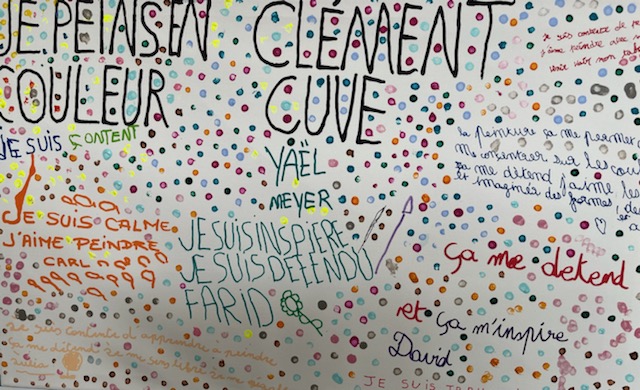 JE PEINS EN
COULEUR
CLÉMENT
CUVE
JE SUIS CONTENT
YAËL
MEYER
JE SUIS CALME
J'AIME PEINDRE
CARL
JE SUIS INSPIERE
JE SUIS DETENDU
FARID
je suis contente de
j'aime peindre avec
la peinture ça me permet d
me concentrer sur les cou
ça me détend j'aime les
et imaginer des formes
ça me detend
et ça m'inspire
David
Je suis contente d'apprendre à peindre
ça me détend
JE SUIS